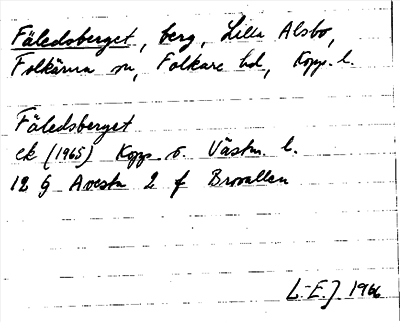 Fäledsberget, berg, Lilla Alsbo,
Folkärna sn, Folkare hd, Kopp. l.
Fäledsberget
ek (1965) Kopp o. Västm. l.
12 G Avesta 2 f Brovallen
L.-E.J. 1966